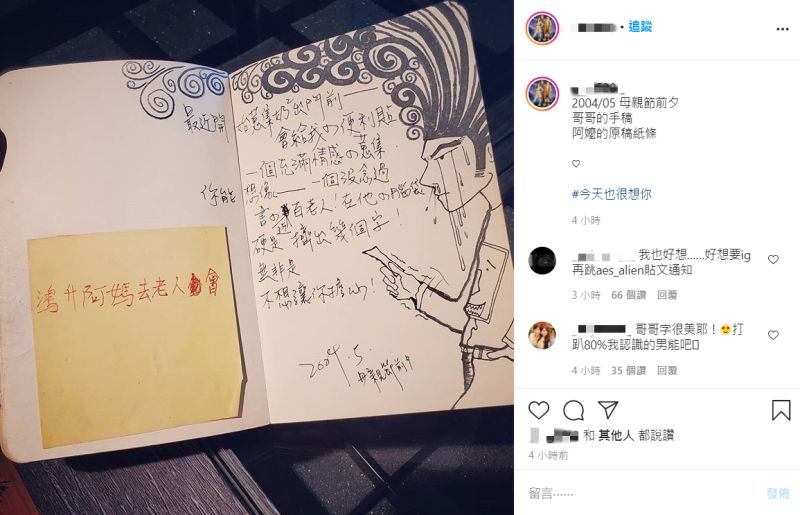 最近開始蒐集奶出門前——
會給我の便利貼
一個充滿情感の蒐集.
你能想像——一個沒念過
書の近百老人!在他の腦袋
硬是擠出幾個字!
無非是
不想讓你擔心!
2004.5.
母親節前夕
鴻升阿媽去老人會
• 追蹤
2004/05 母親節前夕
哥哥的手稿
阿嬤的原稿紙條
♡
#今天也很想你
4 小時
我也好想......好想要ig
再跳aes_alien貼文通知
3 小時 66 個讚 回覆
哥哥字很美耶!😍打
趴80%我認識的男能吧
4 小時 35 個讚 回覆
和 其他人 都說讚
4 小時前
留言⋯⋯ 發佈